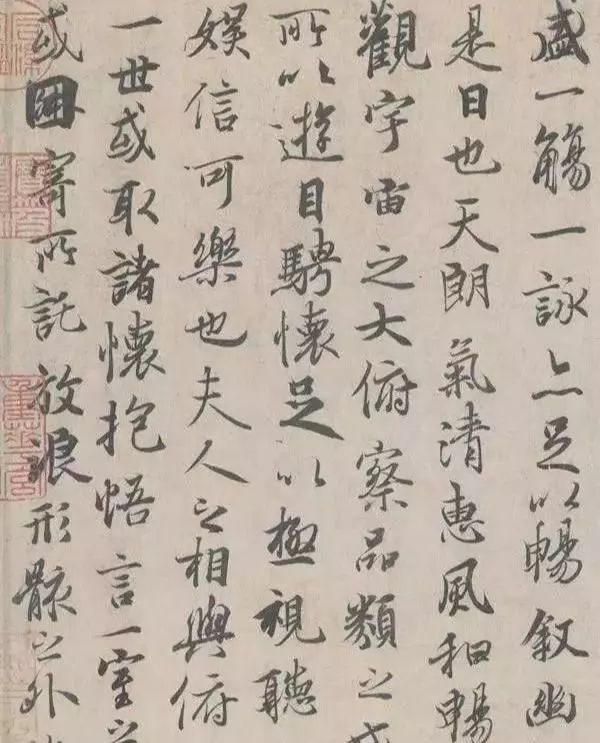 盛一觴一詠亦足以暢叙幽
是日也天朗氣清惠風和暢
觀宇宙之大俯察品類之盛
所以遊目騁懷足以極視聽
娛信可樂也夫人之相與俯
一世或取諸懷抱悟言一室之
或因寄所託放浪形骸之外